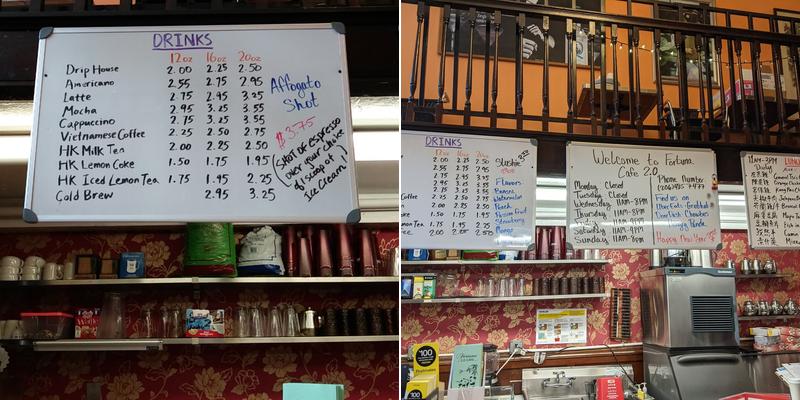 DRINKS
12oz 16oz 20oz
Drip House 2.00 2.25 2.50
Americano 2.55 2.75 2.95
Latte 2.75 2.95 3.25
Mocha 2.95 3.25 3.55
Cappuccino 2.75 3.25 3.55
Vietnamese Coffee 2.25 2.50 2.75
HK Milk Tea 2.00 2.25 2.50
HK Lemon Coke 1.50 1.75 1.95
HK Iced Lemon Tea 1.75 1.95 2.25
Cold Brew 2.95 3.25
Affogato
Shot
$3.75
(Shot of espresso
over your choice
of scoop of
Ice Cream!)
DRINKS
12oz 16oz 20oz
2.00 2.25 2.50
Slushie
Flavors
Watermelon
Peach
Passion Fruit
Strawberry
Mango
Welcome to Fortuna
Cafe 2.0
Monday Closed
Tuesday Closed
Wednesday 11AM-8PM
Thursday 11AM-8PM
Friday 11AM-8PM
Saturday 11AM-8PM
Sunday 11AM-8PM
Phone Number
Find us on
UberEats Grubhub
DoorDash Chowbus
Hungry Panda
Happy New Year
11AM-3PM
100
100